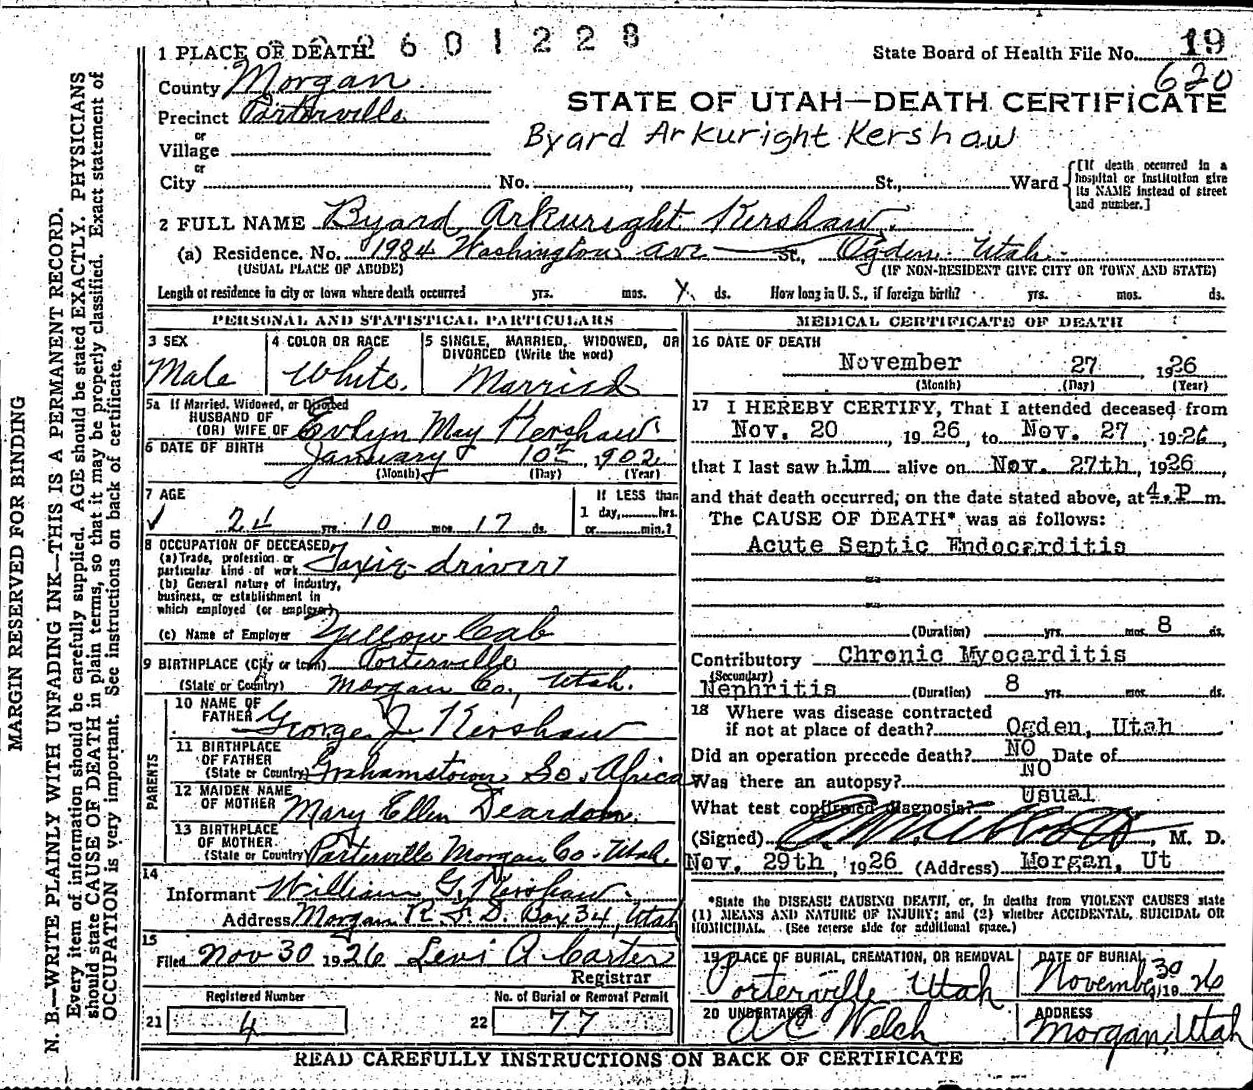 2 2 2 6 0 1 2 2 8
1 PLACE OF DEATH. State Board of Health File No. 19
620
County Morgan
STATE OF UTAH—DEATH CERTIFICATE
Precinct Porterville
Byard Arkuright Kershaw
or
Village
or
City No. , St., Ward
[If death occurred in a
hospital or institution give
its NAME instead of street
and number.]
2 FULL NAME Byard Arkuright Kershaw.
(a) Residence. No. 1984 Washington ave St., Ogden Utah.
(USUAL PLACE OF ABODE) (IF NON-RESIDENT GIVE CITY OR TOWN AND STATE)
Length of residence in city or town where death occurred yrs. mos. ds. How long in U. S., if foreign birth? yrs. mos. ds.
PERSONAL AND STATISTICAL PARTICULARS
3 SEX
Male
4 COLOR OR RACE
White.
5 SINGLE, MARRIED, WIDOWED, OR
DIVORCED (Write the word)
Married
5a If Married, Widowed, or Divorced
HUSBAND OF
(OR) WIFE OF Evlyn May Kershaw
6 DATE OF BIRTH January 10th 1902
(Month) (Day) (Year)
7 AGE
24 yrs. 10 mos. 17 ds.
If LESS than
1 day, hrs.
or min.?
8 OCCUPATION OF DECEASED
(a) Trade, profession or
particular kind of work Taxie driver
(b) General nature of industry,
business, or establishment in
which employed (or employer)
(c) Name of Employer Yellow Cab
9 BIRTHPLACE (City or town) Porterville
(State or Country) Morgan Co., Utah.
PARENTS
10 NAME OF
FATHER George J. Kershaw
11 BIRTHPLACE
OF FATHER
(State or Country) Grahamstown So. Africa
12 MAIDEN NAME
OF MOTHER Mary Ellen Deardon.
13 BIRTHPLACE
OF MOTHER
(State or Country) Porterville Morgan Co. Utah
14
Informant William G. Kershaw.
Address Morgan R. F. D. Box 34, Utah
15
Filed Nov 30 1926 Levi A Carter
Registrar
Registered Number No. of Burial or Removal Permit
21 4 22 77
MEDICAL CERTIFICATE OF DEATH
16 DATE OF DEATH
November 27 1926
(Month) (Day) (Year)
17 I HEREBY CERTIFY, That I attended deceased from
Nov. 20, 1926, to Nov. 27, 1926,
that I last saw him alive on Nov. 27th, 1926,
and that death occurred, on the date stated above, at 4.P m.
The CAUSE OF DEATH* was as follows:
Acute Septic Endocarditis
(Duration) yrs. mos. 8 ds.
Contributory Chronic Myocarditis
(Secondary)
Nephritis (Duration) 8 yrs. mos. ds.
18 Where was disease contracted
if not at place of death? Ogden, Utah
Did an operation precede death? NO Date of
Was there an autopsy? NO
What test confirmed diagnosis? Usual
(Signed) , M. D.
Nov. 29th, 1926 (Address) Morgan, Ut
*State the DISEASE CAUSING DEATH, or, in deaths from VIOLENT CAUSES state
(1) MEANS AND NATURE OF INJURY; and (2) whether ACCIDENTAL, SUICIDAL OR
HOMICIDAL. (See reverse side for additional space.)
19 PLACE OF BURIAL, CREMATION, OR REMOVAL
Porterville Utah
DATE OF BURIAL
November 30 1926
20 UNDERTAKER
A C Welch
ADDRESS
Morgan, Utah
READ CAREFULLY INSTRUCTIONS ON BACK OF CERTIFICATE
MARGIN RESERVED FOR BINDING
N. B.—WRITE PLAINLY WITH UNFADING INK—THIS IS A PERMANENT RECORD.
Every item of information should be carefully supplied. AGE should be stated EXACTLY. PHYSICIANS
should state CAUSE OF DEATH in plain terms, so that it may be properly classified. Exact statement of
OCCUPATION is very important. See instructions on back of certificate.